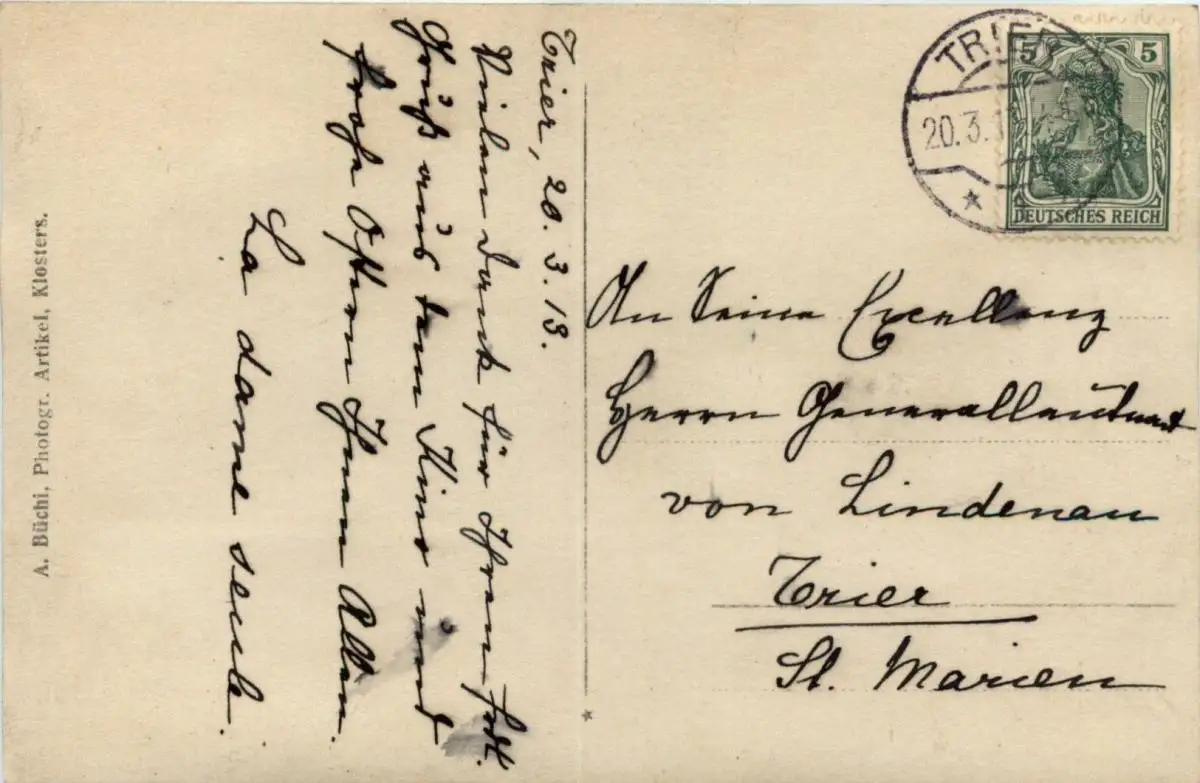 Trier, 20. 3. 13.
Vielen Dank für Ihren frdl.
Gruß aus dem Kino und
frohe Ostern Ihnen Allen.
La dame seule.
A. Büchi, Photogr. Artikel, Klosters.
TRIER
20.3.1
5 5
DEUTSCHES REICH
An Seine Excellenz
Herrn Generalleutnant
von Lindenau
Trier
St. Marien